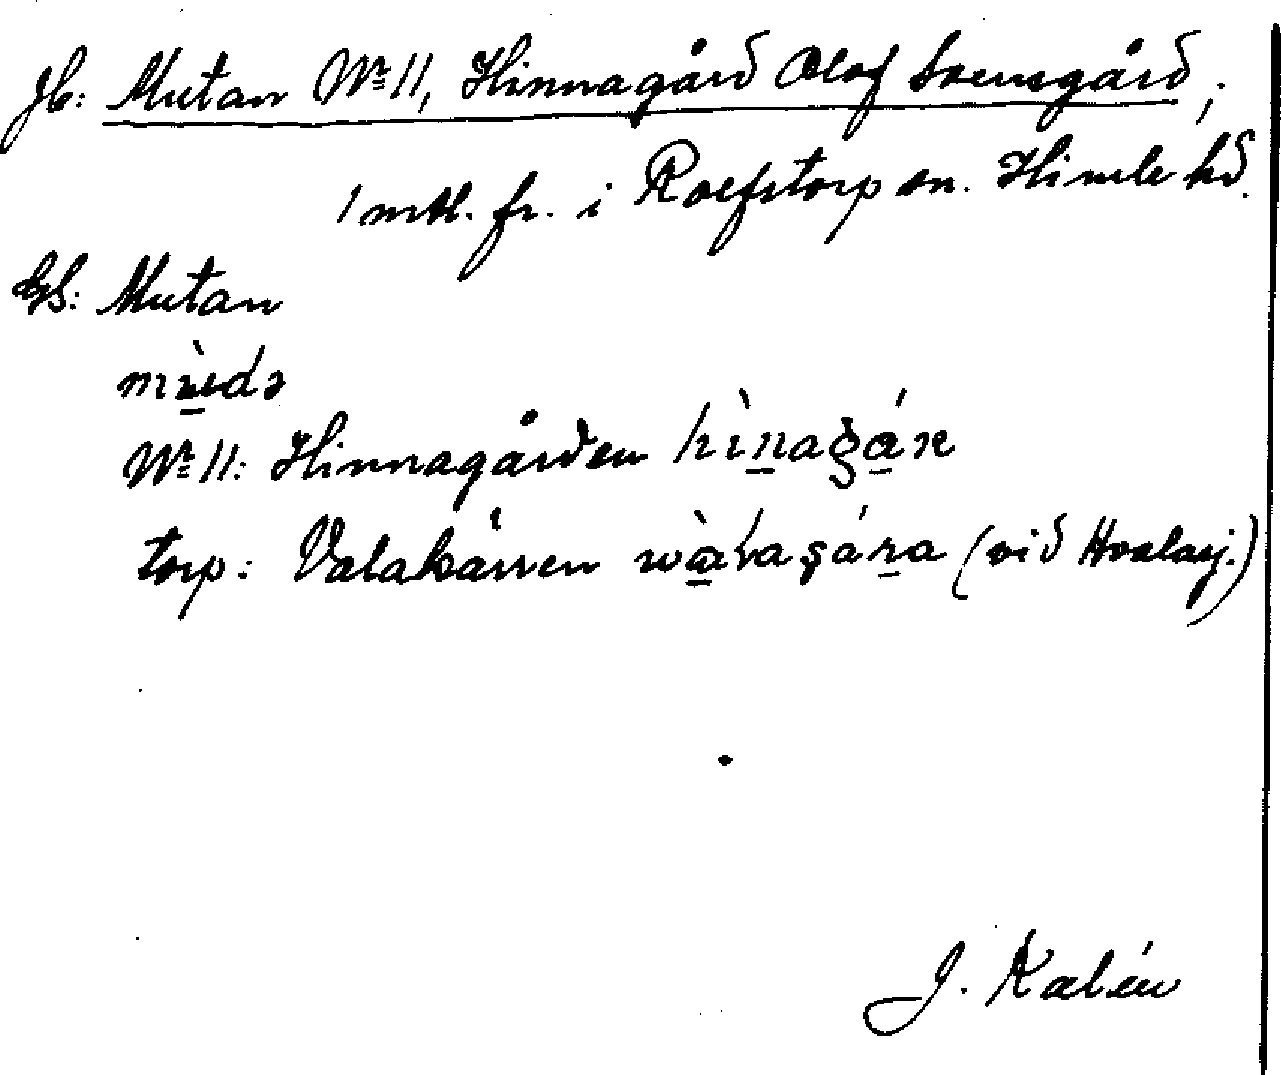 Jb: Mutan Nr 11, Hinnagård Olof Svensgård;
1 mtl. fr. i Rolfstorp sn. Himle hd.
GS: Mutan
Nr 11: Hinnagården
torp: Valakärren (vid Hvalasj.)
J. Kalén